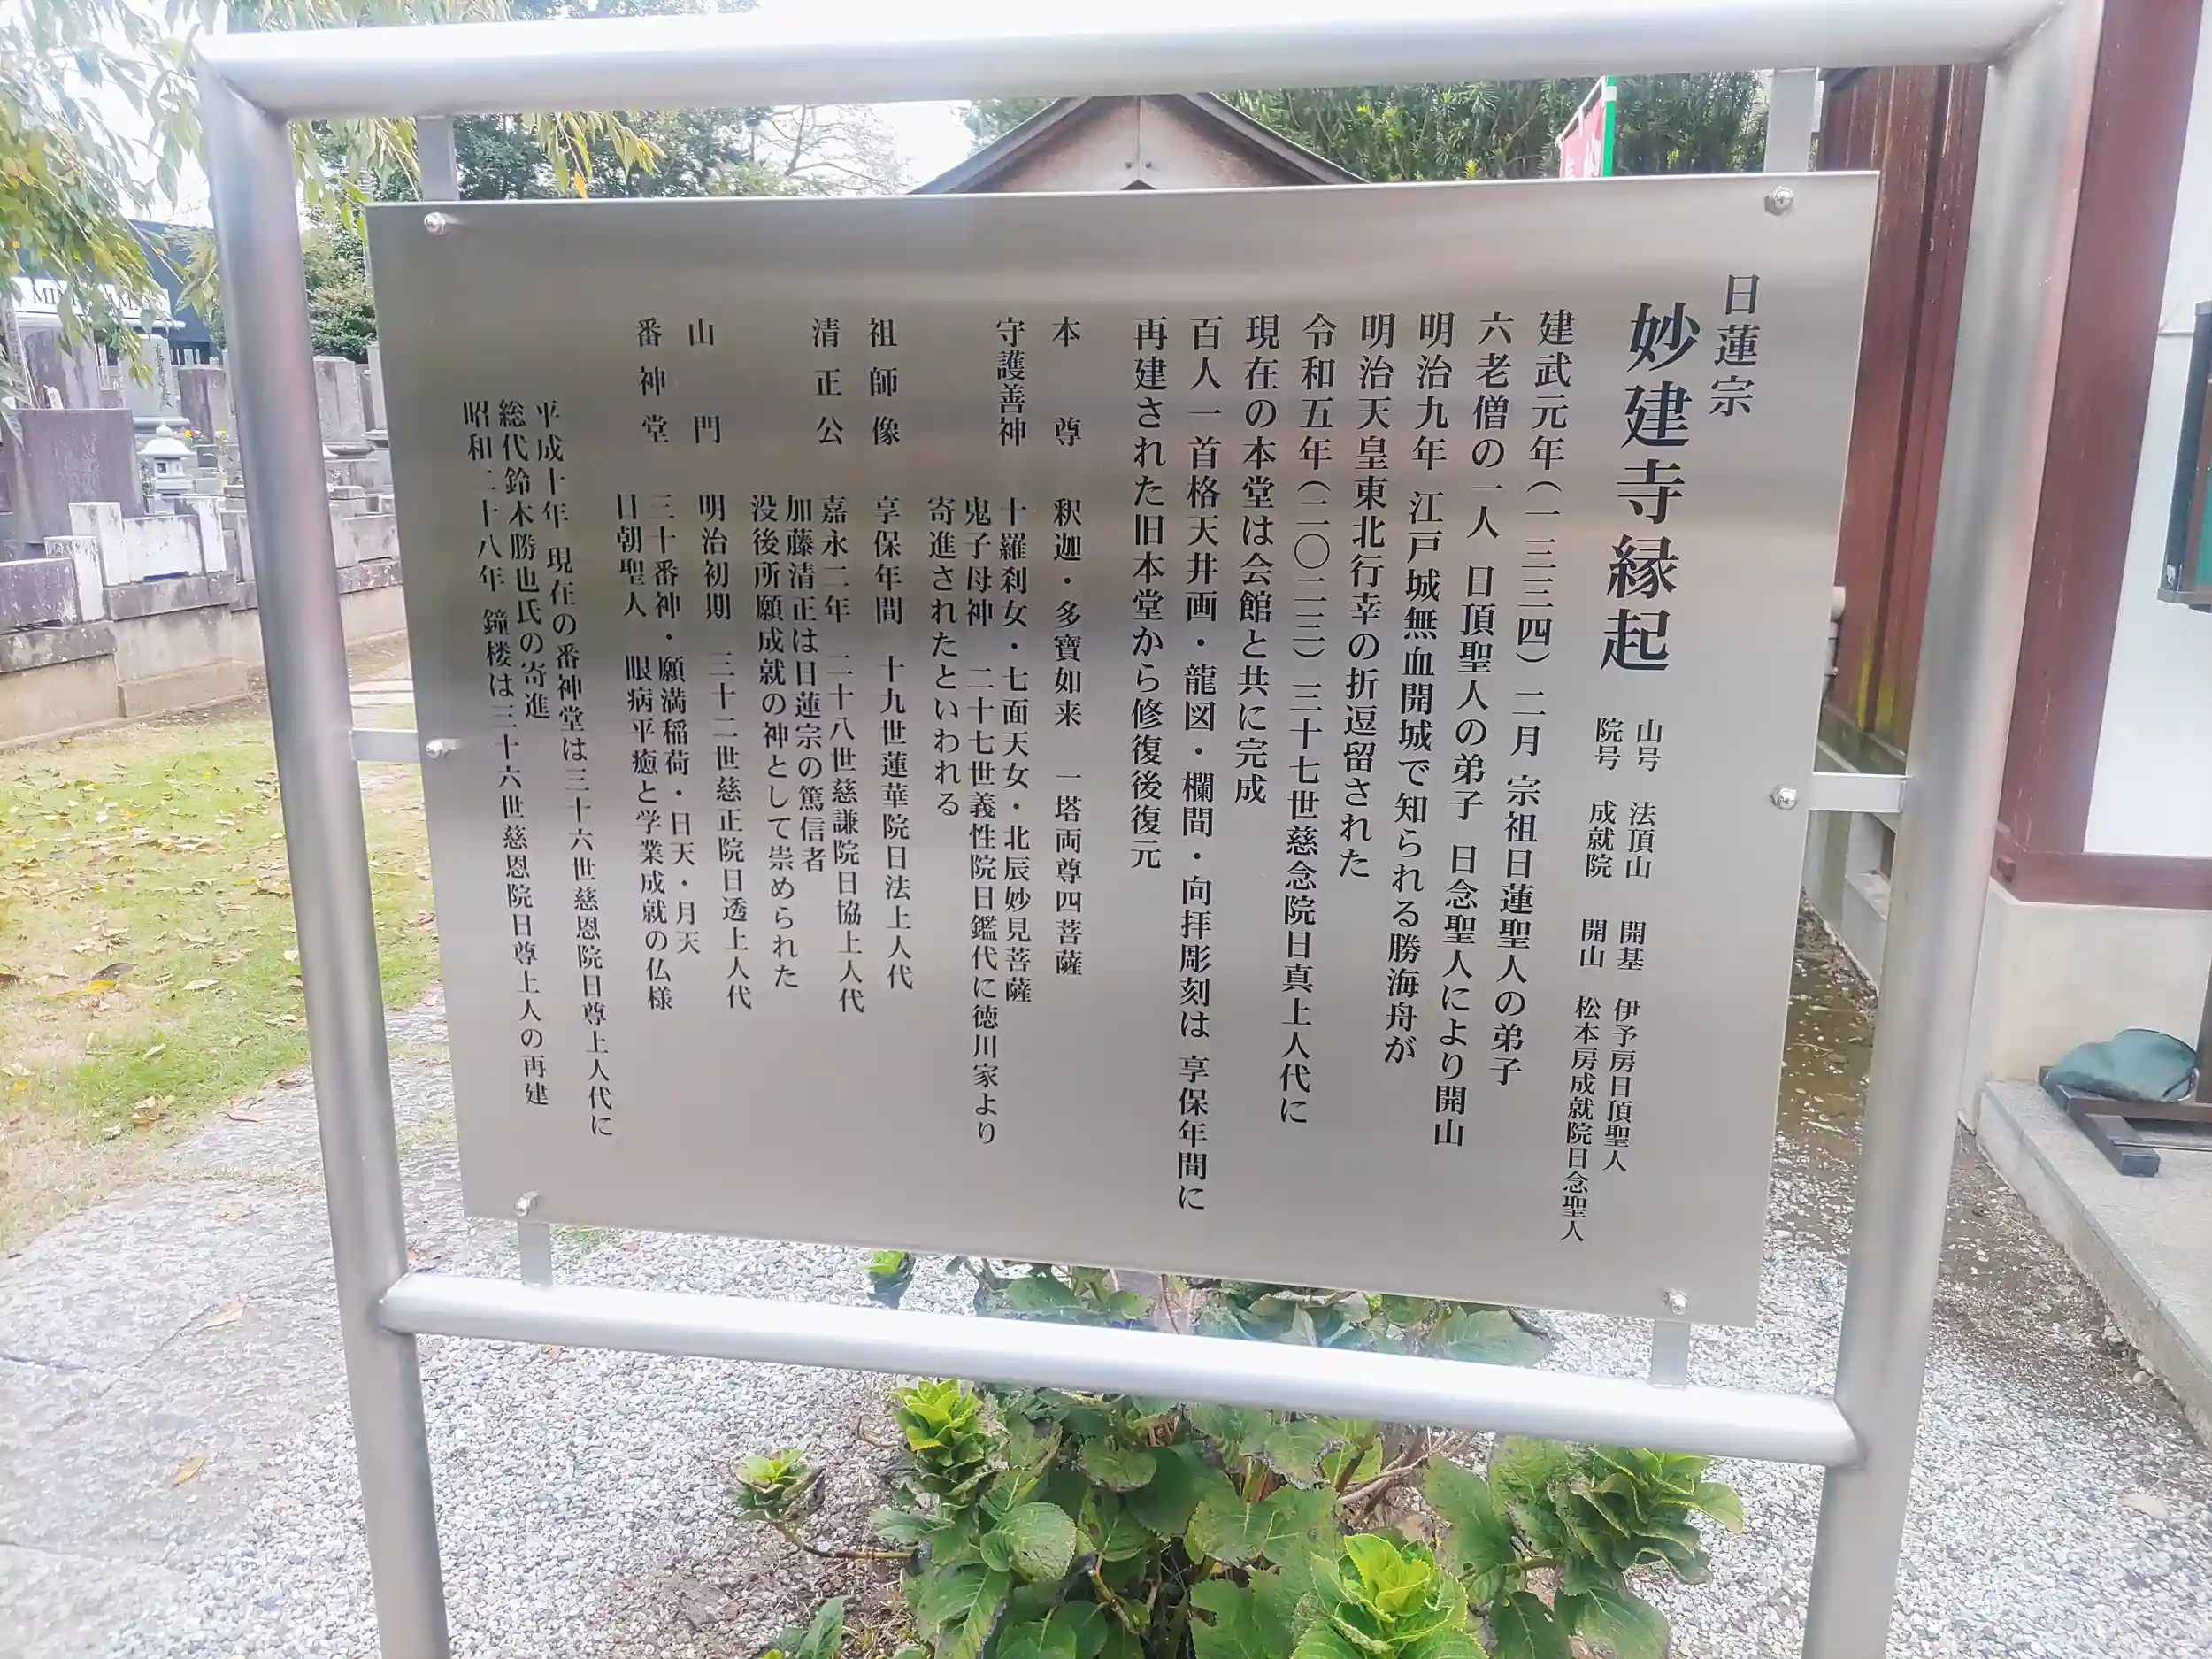 日蓮宗
妙建寺縁起
山号 法頂山 開基 伊予房日頂聖人
院号 成就院 開山 松本房成就院日念聖人
建武元年(一三三四)二月 宗祖日蓮聖人の弟子
六老僧の一人 日頂聖人の弟子 日念聖人により開山
明治九年 江戸城無血開城で知られる勝海舟が
明治天皇東北行幸の折逗留された
令和五年(二〇二三)三十七世慈念院日真上人代に
現在の本堂は会館と共に完成
百人一首格天井画・龍図・欄間・向拝彫刻は 享保年間に
再建された旧本堂から修復後復元
本尊 釈迦・多寶如来 一塔両尊四菩薩
守護善神 十羅刹女・七面天女・北辰妙見菩薩
鬼子母神 二十七世義性院日鑑代に徳川家より
寄進されたといわれる
祖師像 享保年間 十九世蓮華院日法上人代
清正公 嘉永二年 二十八世慈謙院日協上人代
加藤清正は日蓮宗の篤信者
没後所願成就の神として崇められた
山門 明治初期 三十二世慈正院日透上人代
番神堂 三十番神・願満稲荷・日天・月天
日朝聖人 眼病平癒と学業成就の仏様
平成十年 現在の番神堂は三十六世慈恩院日尊上人代に
総代鈴木勝也氏の寄進
昭和二十八年 鐘楼は三十六世慈恩院日尊上人の再建